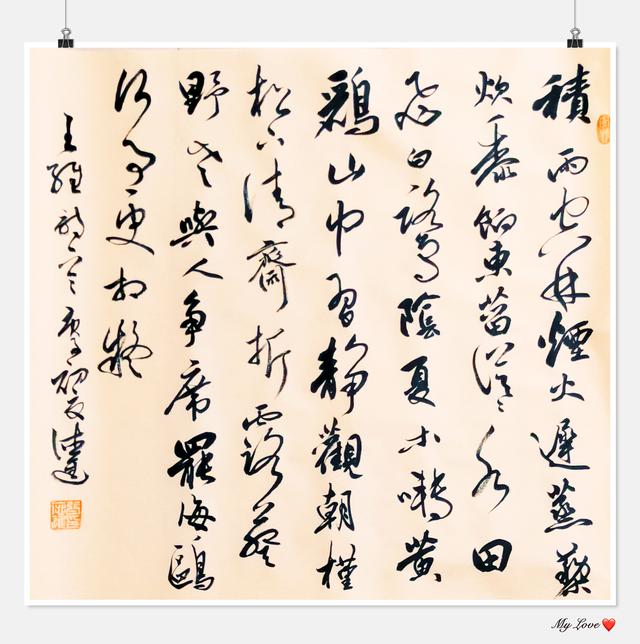 積雨空林煙火遲蒸藜
炊黍餉東菑漠〻水田
飛白鷺陰夏木囀黃
鸝山中習靜觀朝槿
松下清齋折露葵
野老與人爭席罷海鷗
何事更相疑
王維詩一
My Love ❤️